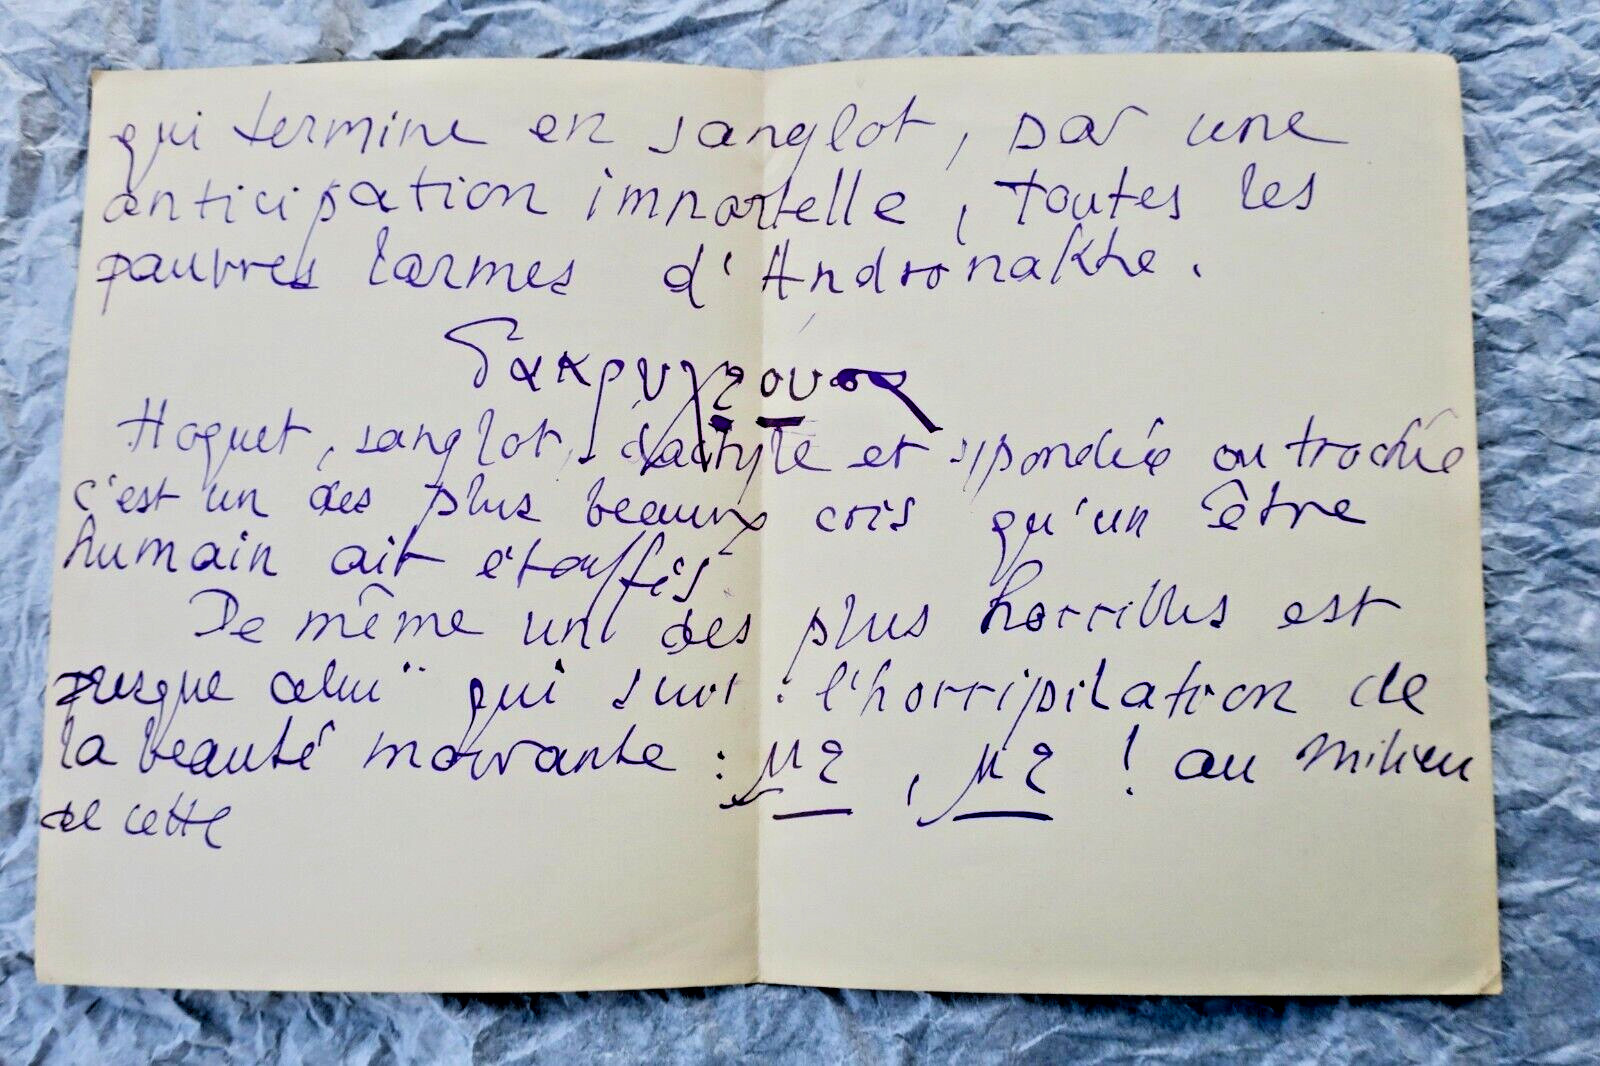 qui termine en sanglot, par une
anticipation immortelle, toutes les
pauvres larmes d'Andromakhe.
δακρυχέουσα
Hoquet, sanglot, dactyle et spondée ou trochée
c'est un des plus beaux cris qu'un être
humain ait étouffés
De même un des plus horribles est
presque celui qui suit : l'horripilation de
la beauté mourante : μη, μη ! au milieu
de cette